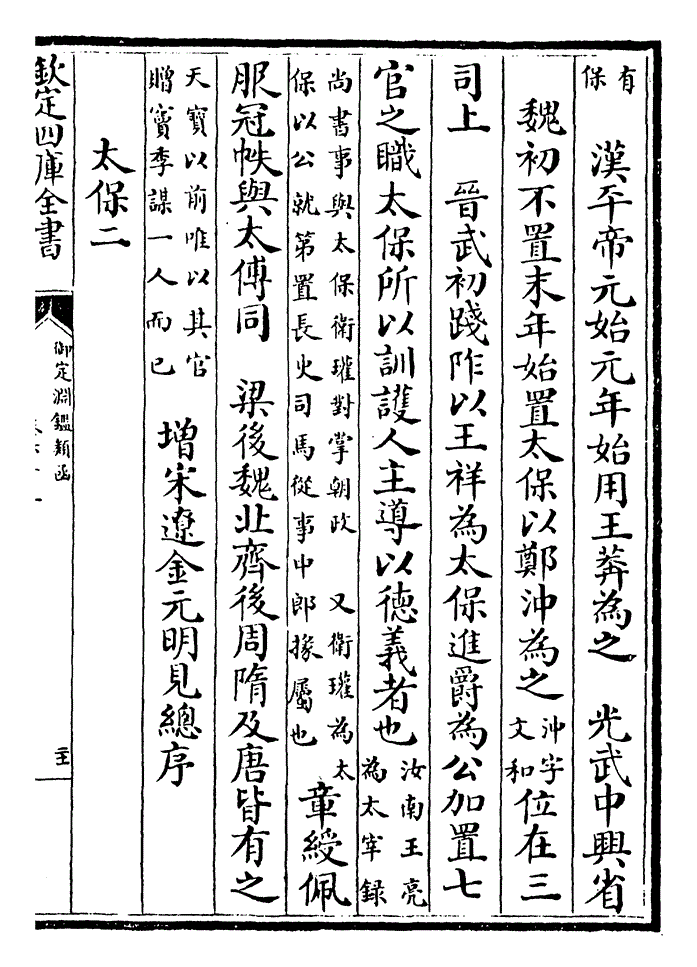 有保 漢平帝元始元年始用王莽為之 光武中興省
魏初不置末年始置太保以鄭沖為之 沖字文和 位在三
司上 晉武初踐阼以王祥為太保進爵為公加置七
官之職太保所以訓護人主導以德義者也 汝南王亮為太宰録
尚書事與太保衛瓘對掌朝政 又衛瓘為太保以公就第置長史司馬從事中郎掾屬也 章綬佩
服冠帙與太傅同 梁後魏北齊後周隋及唐皆有之
天寶以前唯以其官贈竇季謀一人而已 增宋遼金元明見總序
太保二
欽定四庫全書
御定淵鑑類函